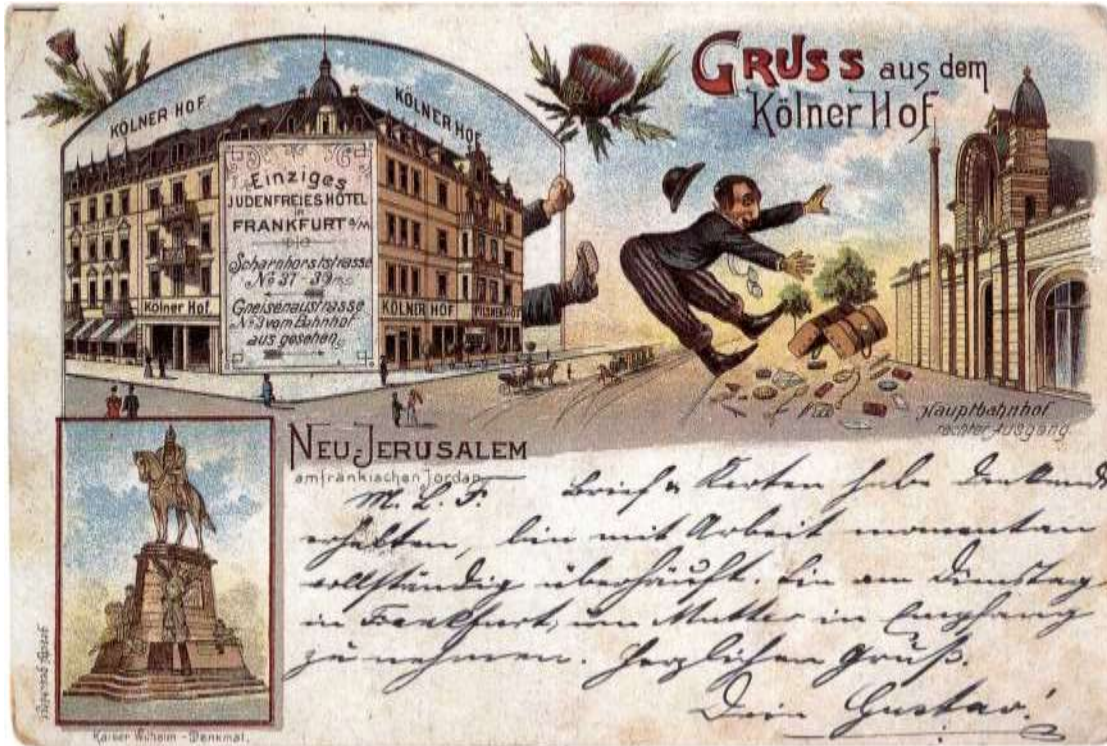 GRUSS aus dem
Kölner Hof
KÖLNER HOF
KÖLNER HOF
Einziges
JUDENFREIES HÔTEL
in
FRANKFURT a/M
Scharnhorststrasse
No 37-39
Gneisenaustrasse
No 3 vom Bahnhof
aus gesehen
Kölner Hof
KÖLNER HOF
Hauptbahnhof
rechter Ausgang
NEU-JERUSALEM
am fränkischen Jordan
M. L. F. Brief & Karten habe dankend
erhalten, bin mit Arbeit momentan
vollständig überhäuft. Bin am Dienstag
in Frankfurt, um Mutter in Empfang
zu nehmen. Herzlichen Gruß.
Dein Gustav!
Kaiser Wilhelm - Denkmal.